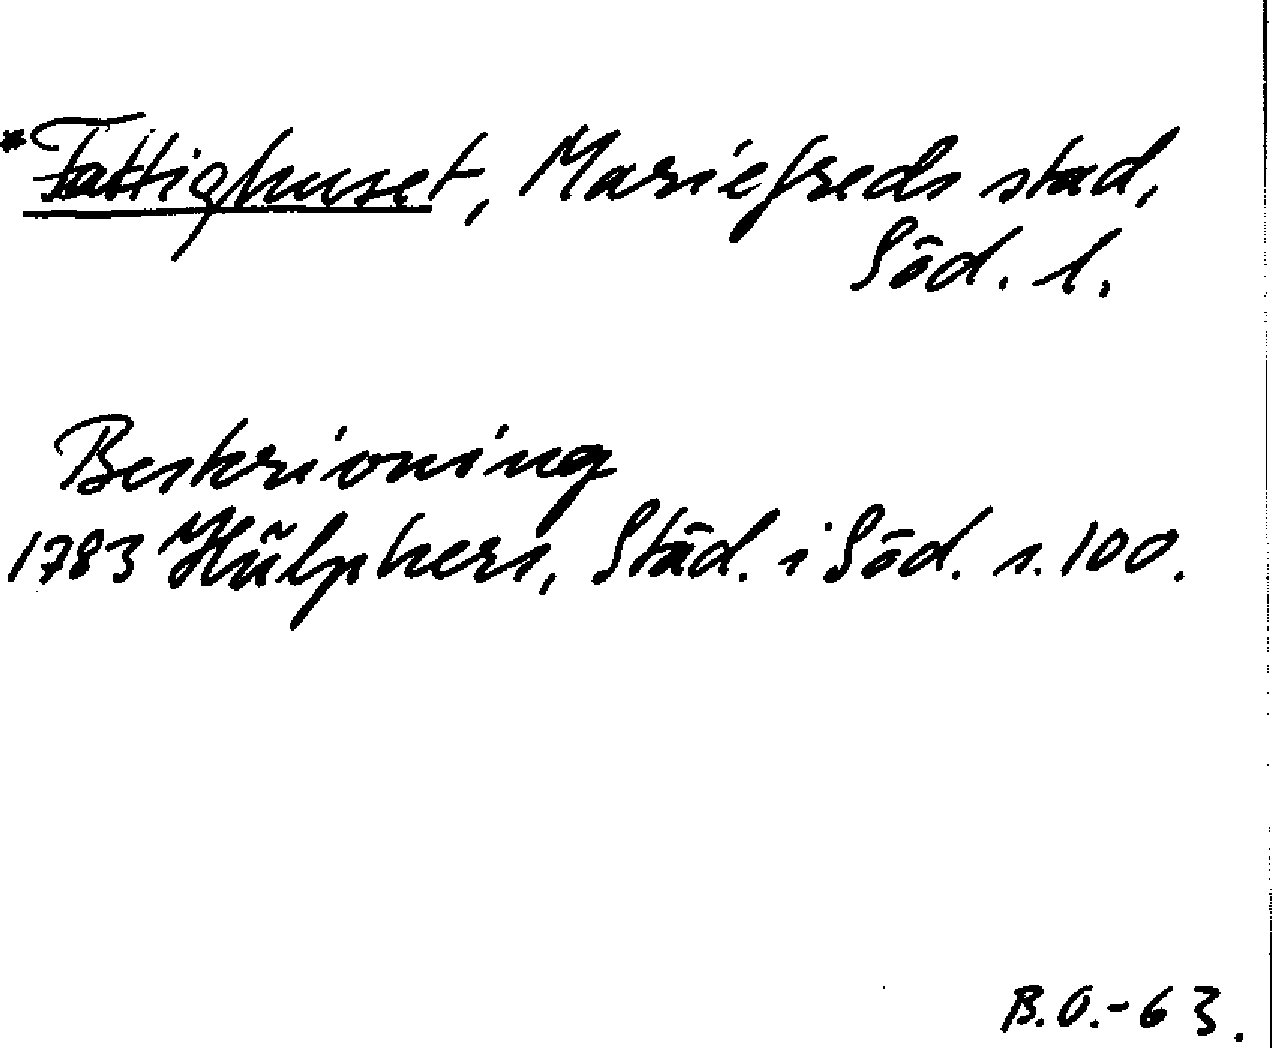 *Fattighuset, Mariefreds stad,
Söd. l.
Beskrivning
1783 Hülphers, Städ. i Söd. s. 100.
B.O.-63.